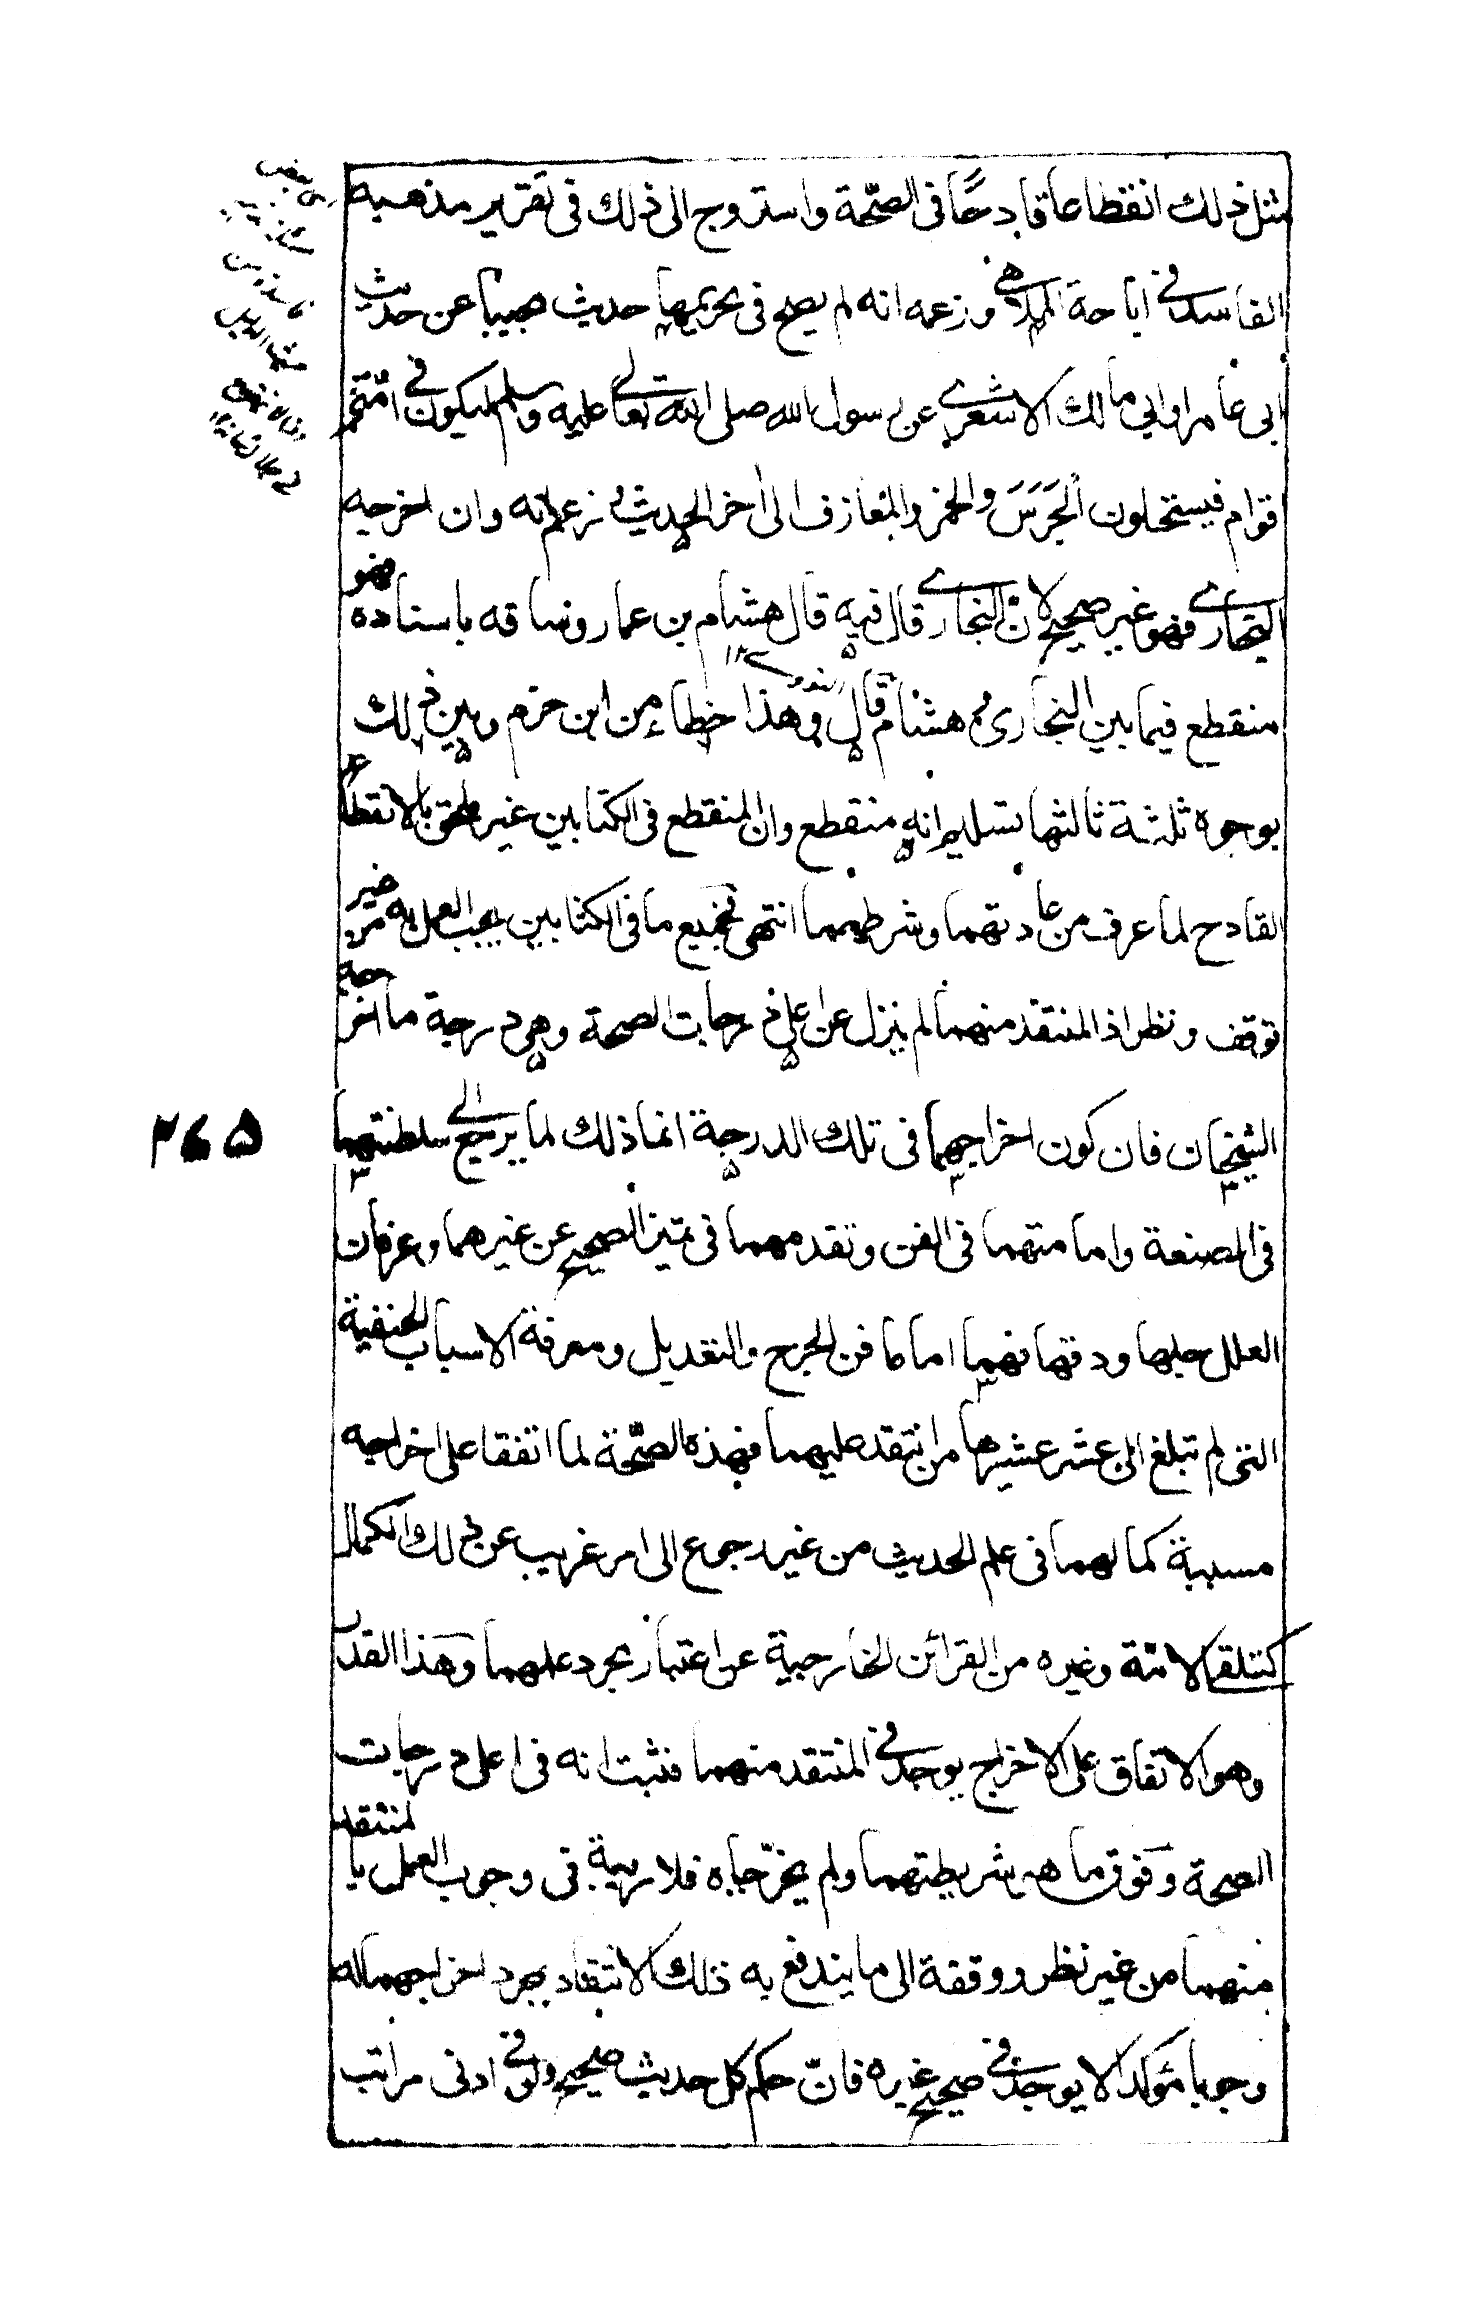 مثل ذلك انقطاعا قادحًا فى الصّحة واستروج الى ذلك فى تقرير مذهبه
الفاسد فى اباحة الملاهى وزعمه انه لم يصح فى تحريمها حديث مجيبا عن حديث
ابى عامر او ابى مالك الاشعرى عن رسول الله صلى الله تعالى عليه وسلم ليكونن فى امتى
قوام فيستحلون الحرَ والخمر والمعازف الى أخر الحديث فزعم انه وان اخرجه
البخارى فهو غير صحيح لان البخارى قال فيه قال هشام بن عمار وساقه باسناده فهو
منقطع فيما بين البخارى وهشام قال النووى ١٢ وهذا خطاء من ابن حزم وبين ذلك
بوجوه ثلثة ثالثها بتسليم انه منقطع وان المنقطع فى الكتابين غير ملحق بالانقطاع
القادح لما عرف من عادتهما وشرطهما انتهى فجميع ما فى الكتابين يجب العمل به من غير
توقف ونظر اذ المنتقد منهما لم ينزل عن اعلى درجات الصحة وهى درجة ما اخرجه
الشيخان فان كون اخراجهما فى تلك الدرجة انما ذلك لما يرجع الى سلطنتهما
فى الصنعة وامامتهما فى الفن وتقدمهما فى تميز الصحيح عن غيرهما وعرفان
العلل جليها ودقتها فهما اماما فن الجرح والتعديل ومعرفة الاسباب الخفية
التى لم تبلغ الى عشر عشيرها من انتقد عليهما فهذه الصّحة لما اتفقا على اخراجه
مسببة كمالهما فى علم الحديث من غير رجوع الى امر غريب عن ذلك الكمال
كتلقى الامة وغيره من القرائن الخارجية عن اعتبار مجرد علمهما وهذا القدر
وهو الاتفاق على الاخراج يوجد فى المنتقد منهما فثبت انه فى اعلى درجات
الصحة وفوق ما هو بشريطتهما ولم يخرّجاه فلا ريبة فى وجوب العمل بالمنتقد
منهما من غير نظر ووقفة الى ما يندفع به ذلك الانتقاد بمجرد اخراجهما له
وجوبا مؤكدا لا يوجد فى صحيح غيره فانّ حكم كل حديث صحيح ولو فى ادنى مراتب
٢٦٥